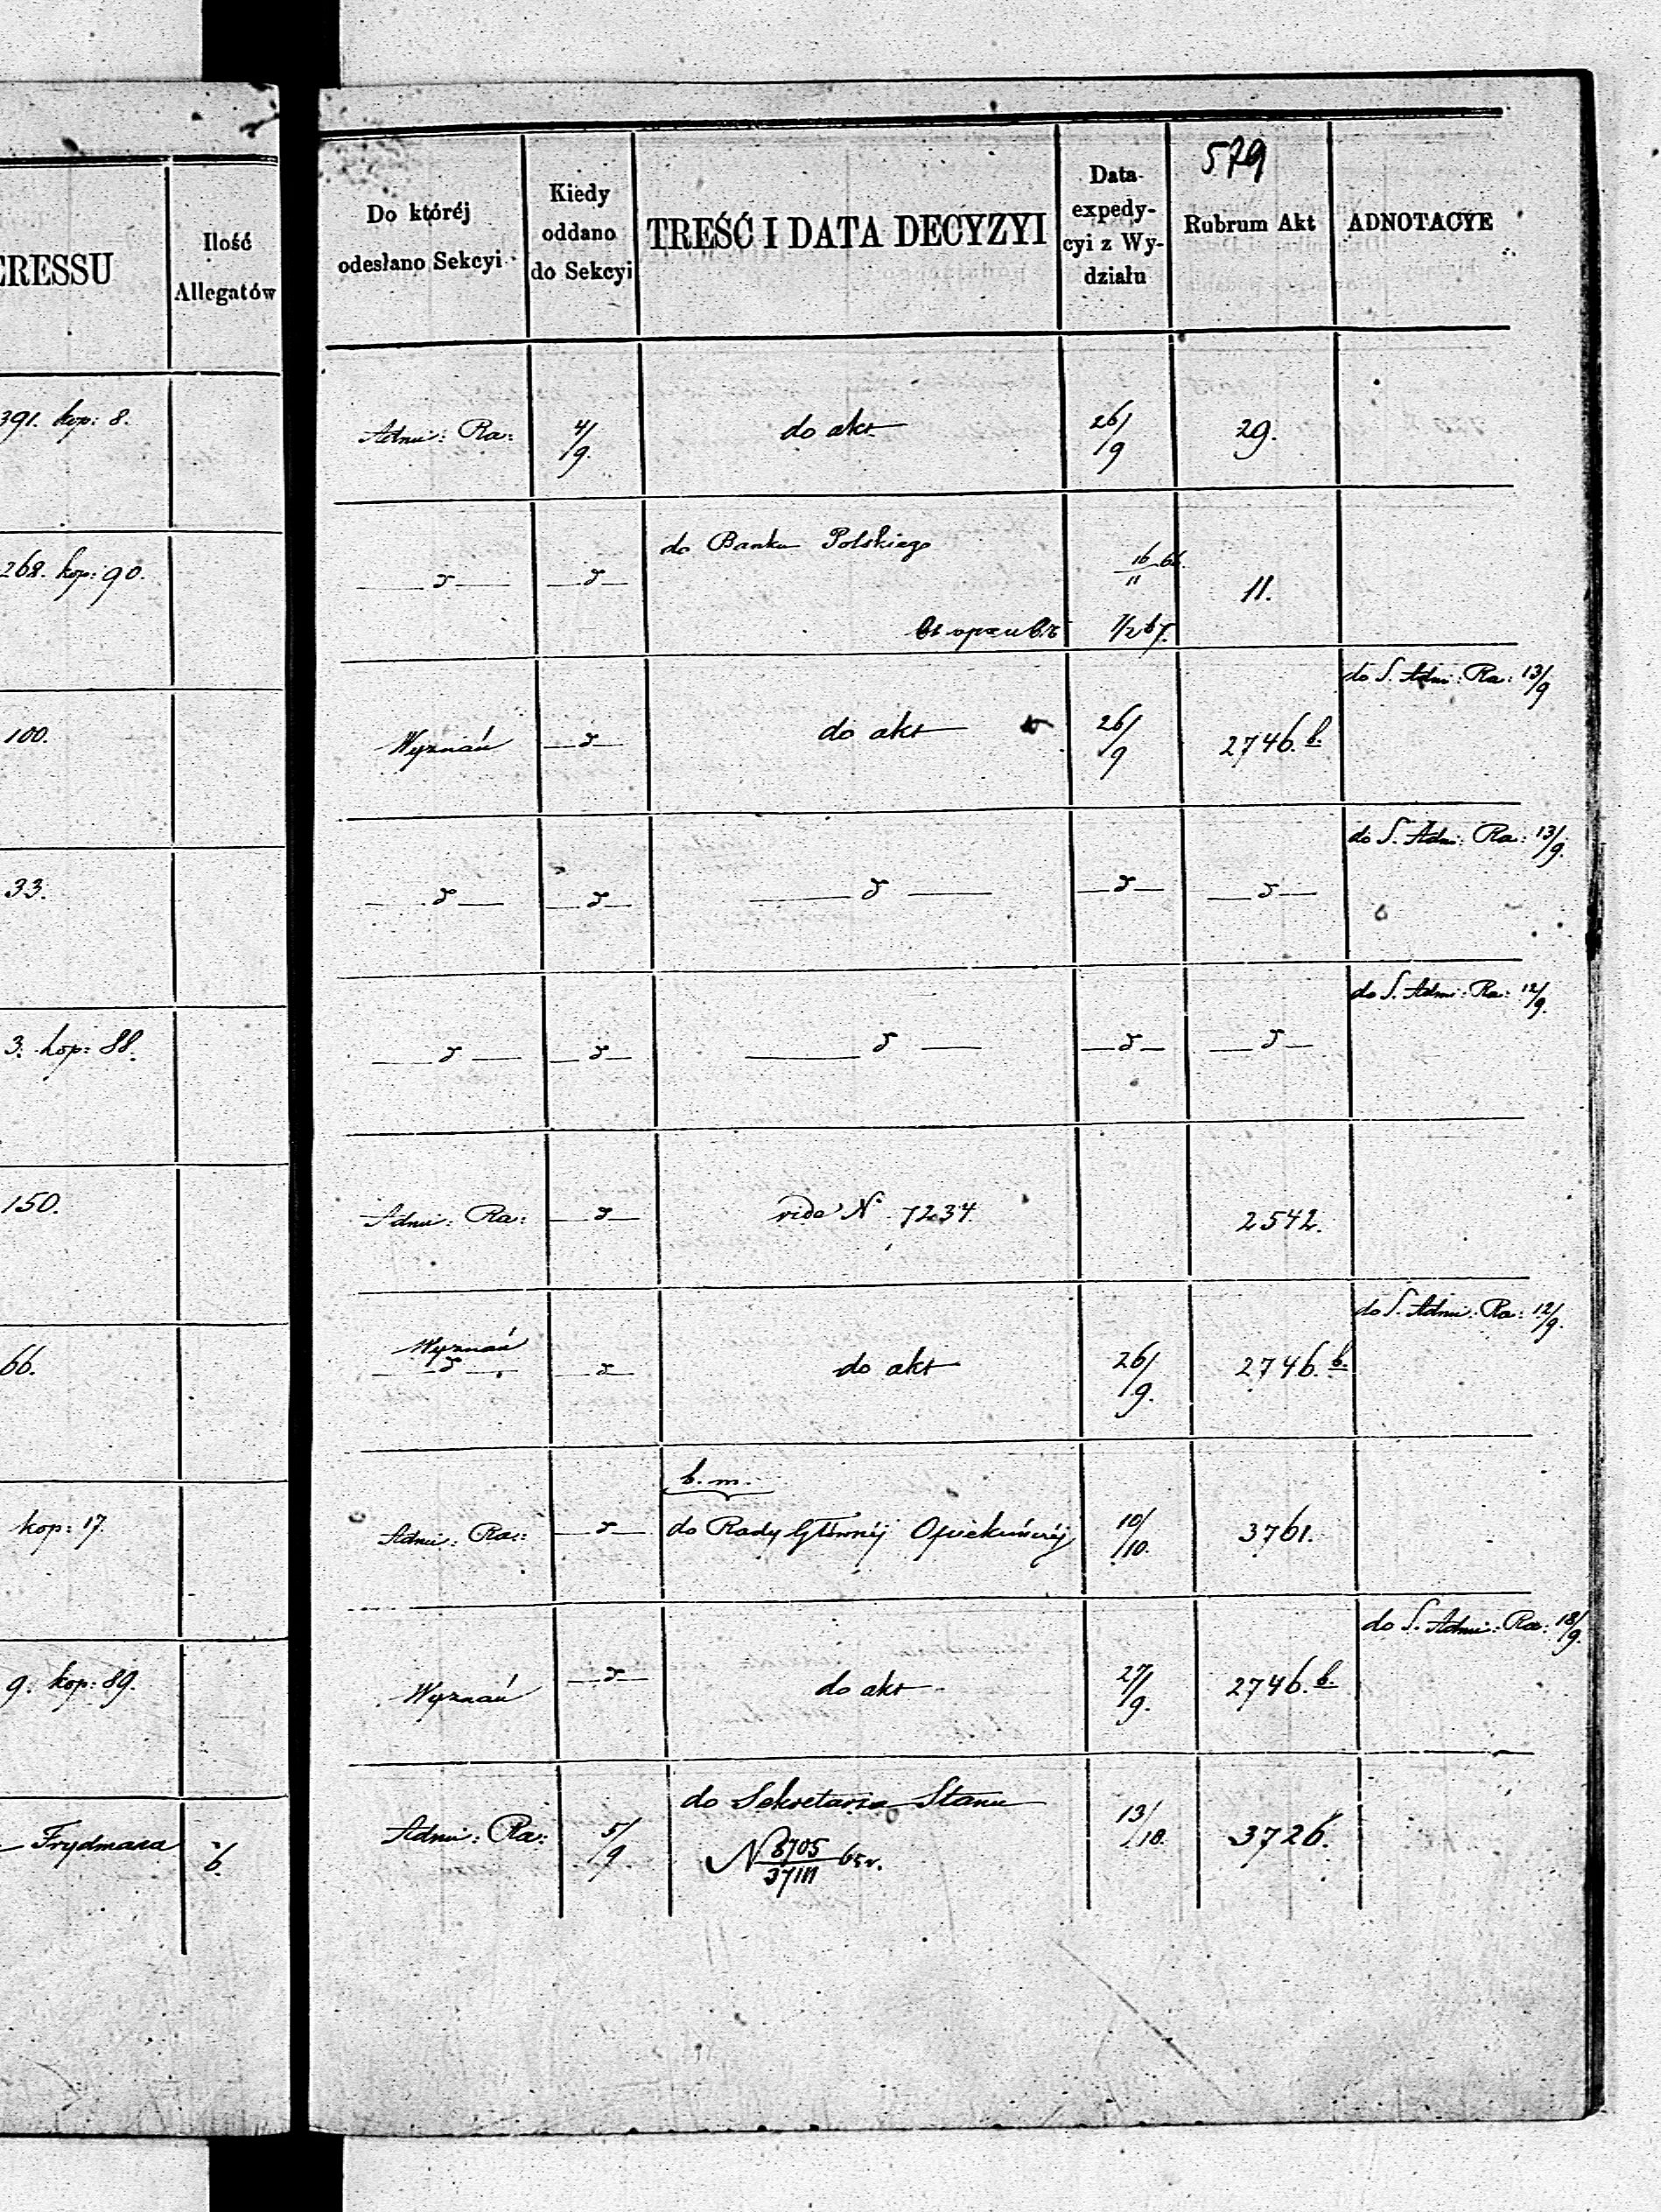 579
ERESSU
Ilość
Allegatów
Do któréj
odesłano Sekcyi
Kiedy
oddano
do Sekcyi
TREŚĆ I DATA DECYZYI
Data
expedy-
cyi z Wy-
działu
Rubrum Akt
ADNOTACYE
391. kop: 8.
Admi: Ra: 4/9. do akt 26/9 29.
268. kop: 90.
do Banku Polskiego 16/11 66.
— d — — d — 11.
1/2 67.
do S. Admi: Ra: 13/9
100.
Wyznań — d — do akt 26/9 2746. b.
do S. Admi: Ra: 13/9.
33.
— d — — d — — d — — d — — d —
do S. Admi: Ra: 12/9.
3. kop: 88.
— d — — d — — d — — d — — d —
150.
Admi: Ra: — d — vide N 7234. 2542.
do S. Admi: Ra: 12/9.
66.
Wyznań
— d — — d — do akt 26/9. 2746. b.
b. m.
kop: 17.
Admi: Ra: — d — do Rady Głównéj Opiekuńczéj 10/10. 3761.
do S. Admi: Ra: 18/9.
9. kop: 89.
Wyznań — d — do akt 27/9. 2746. b.
do Sekretarza Stanu
Frydmana 6.
Admi: Ra: 5/9 13/10. 3726.
N 8705